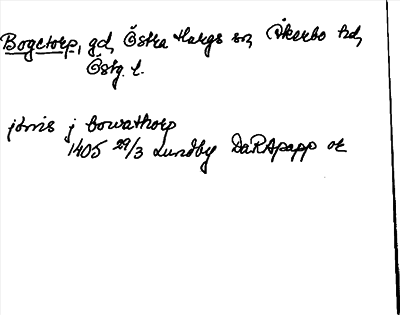 Bogetorp, gd, Östra Hargs sn, Åkerbo hd,
Östg. l.
jönis j bowathorp
1405 29/3 Lundby DaRApapp or